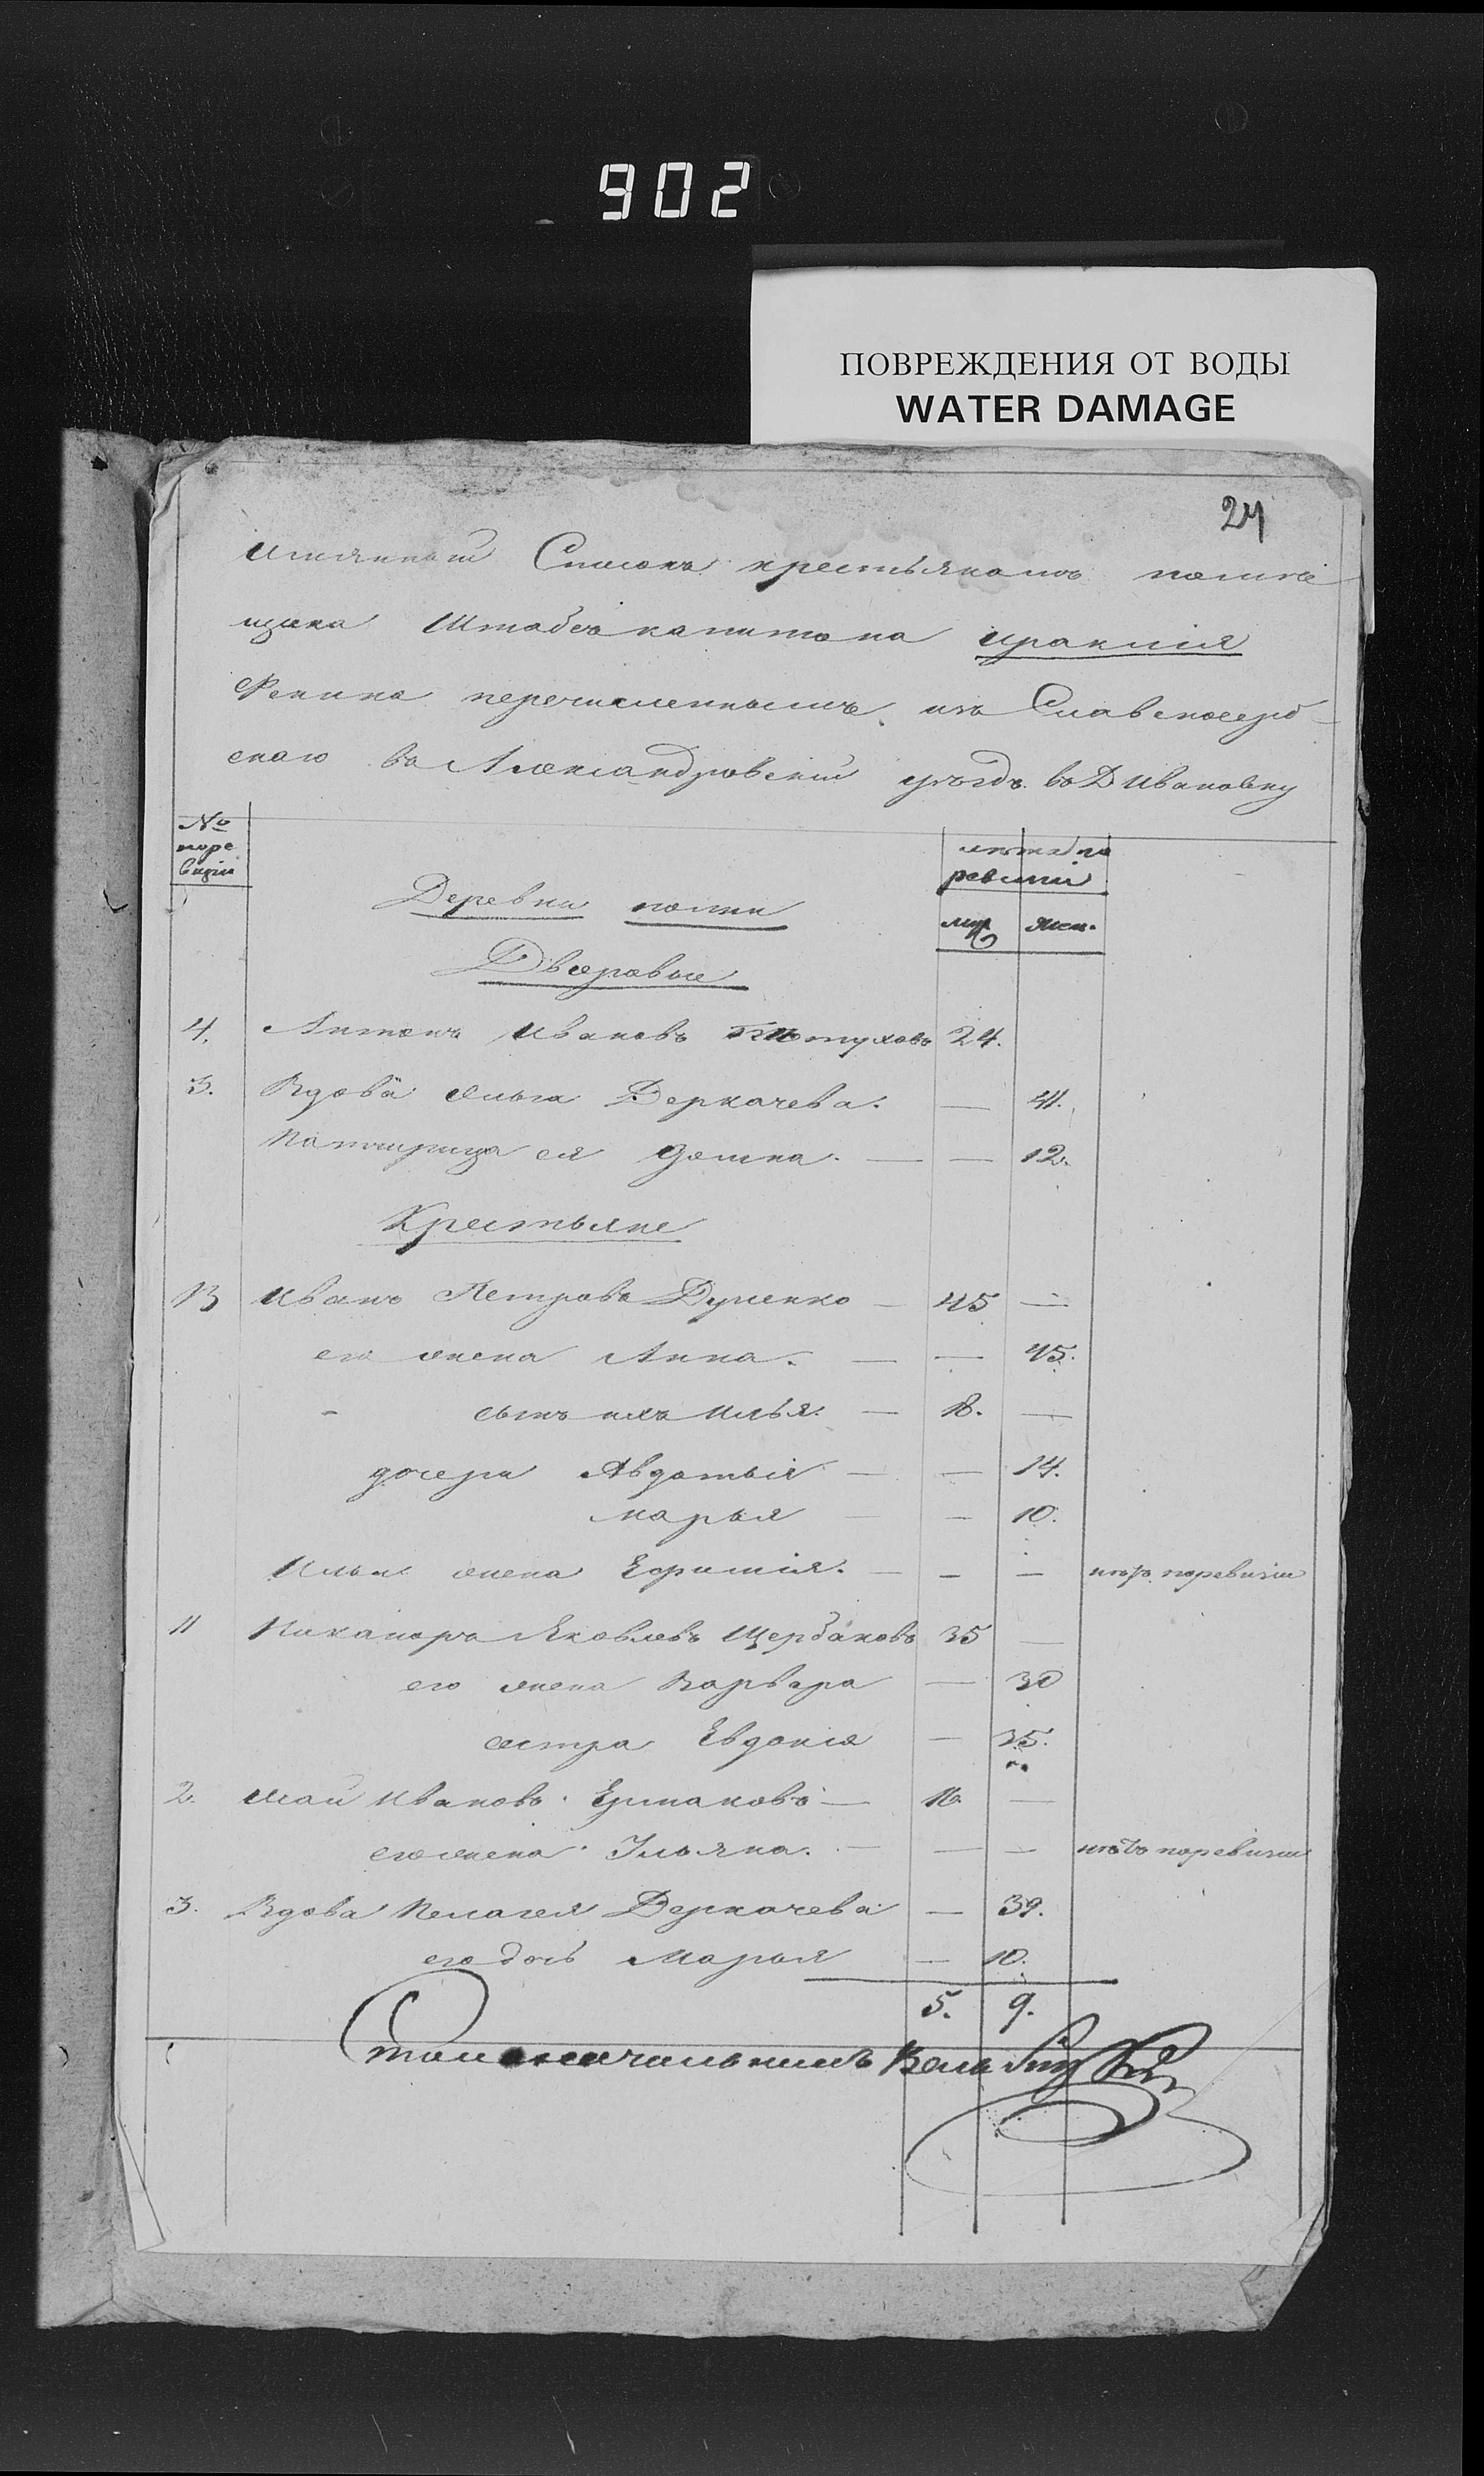 902
ПОВРЕЖДЕНИЯ ОТ ВОДЫ
WATER DAMAGE
24
Имянный Списокъ крестьянамъ помѣ
щика Штабсъ капитана Ираклія
перечисленнымъ изъ Славеносерб-
скаго въ Александровскій уѣздъ въ Д Ивановку
№ поре визіи
лѣта по ревизіи
муж жен.
Деревни
Дворовые
4. Антонъ Ивановъ 24.
3. Вдова Ольга Деркачева. — 41.
ея — — 12.
Крестьяне
13 Иванъ Петровъ Дуленко — 45 —
его жена Анна. — — 45.
- сынъ ихъ Илья. — 18. —
дочери Авдотья — — 14.
Марья — — 10.
Ильи жена Ефимія. — — — нѣтъ поревизіи
11 Никаноръ Яковлевъ Щербаковъ 35 —
его жена Варвара — 30
сестра Евдокія — 35.
2. Ивановъ Ермаковъ — 16 —
его жена Ульяна. — — — нѣтъ поревизіи
3. Вдова Пелагея Деркачева — 39.
его дочь Марья — 10.
5. 9.
Столоначальникъ